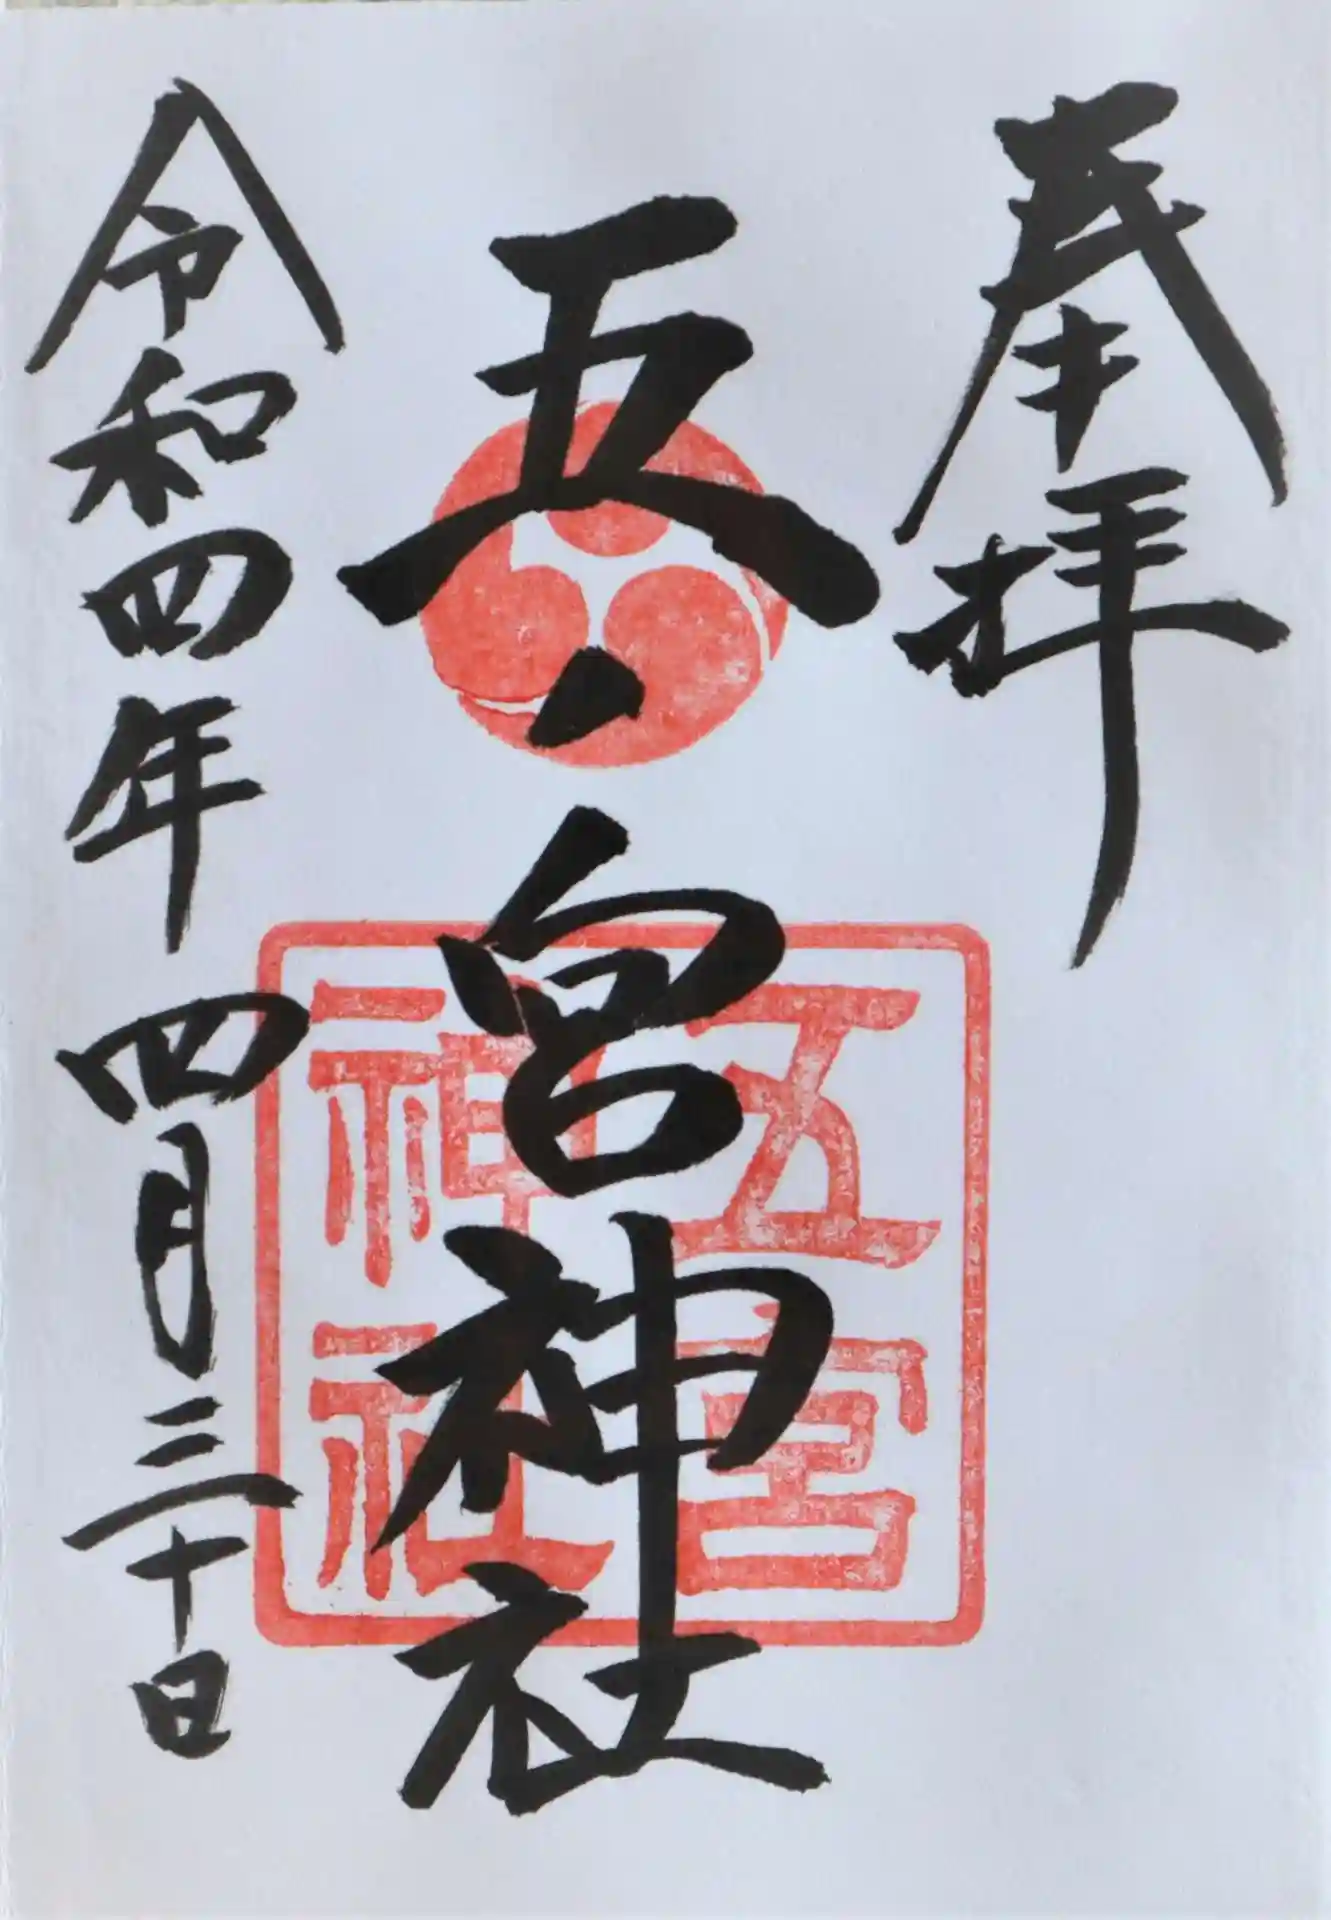 奉拝
五ノ宮神社
五宮
神社
令和四年四月三十日